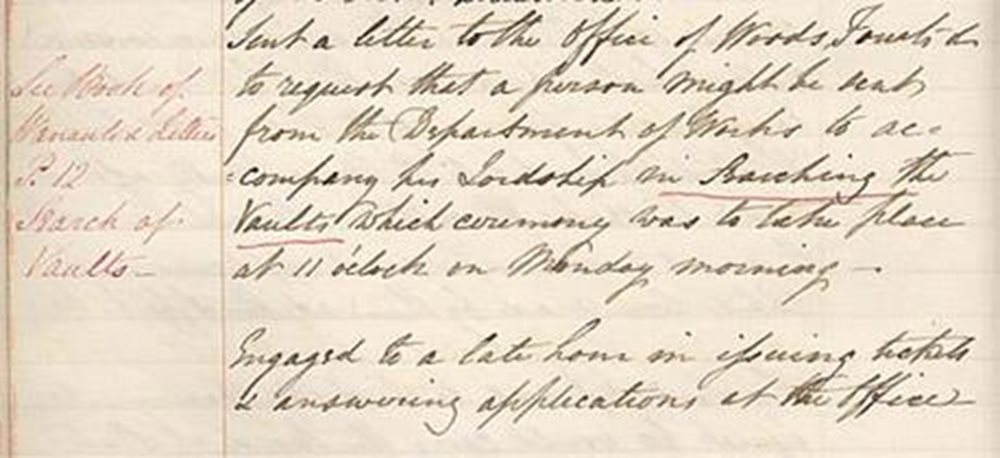 Sent a letter to the Office of Woods, Forests &
to request that a person might be sent
from the Department of Works to ac=
=company his Lordship in Searching the
Vaults which ceremony was to take place
at 11 o'clock on Monday morning —
Engaged to a late hour in issuing tickets
& answering applications at the Office
See Book of
Warrants & Letters
P. 12
Search of
Vaults —